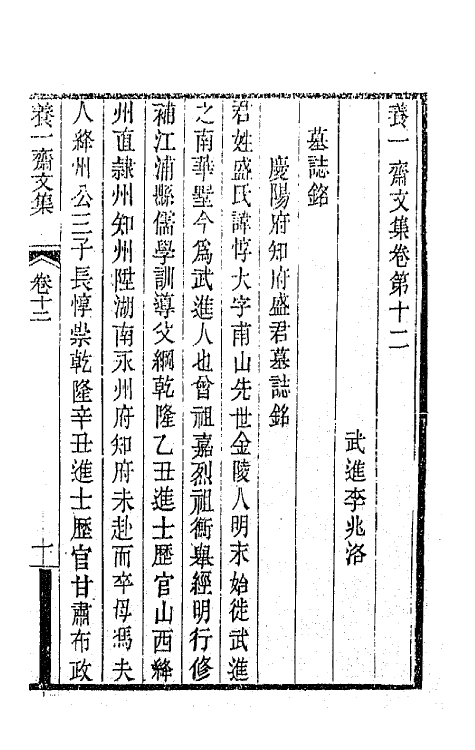 養一齋文集卷第十二
武進李兆洛
墓誌銘
慶陽府知府盛君墓誌銘
君姓盛氏諱惇大字甫山先世金陵人明末始徙武進
之南華墅今爲武進人也曾祖嘉烈祖衝舉經明行修
補江浦縣儒學訓導父綱乾隆乙丑進士歷官山西絳
州直隸州知州陞湖南永州府知府未赴而卒母馮夫
人絳州公三子長惇崇乾隆辛丑進士歷官甘肅布政
養一齋文集
卷十二
一